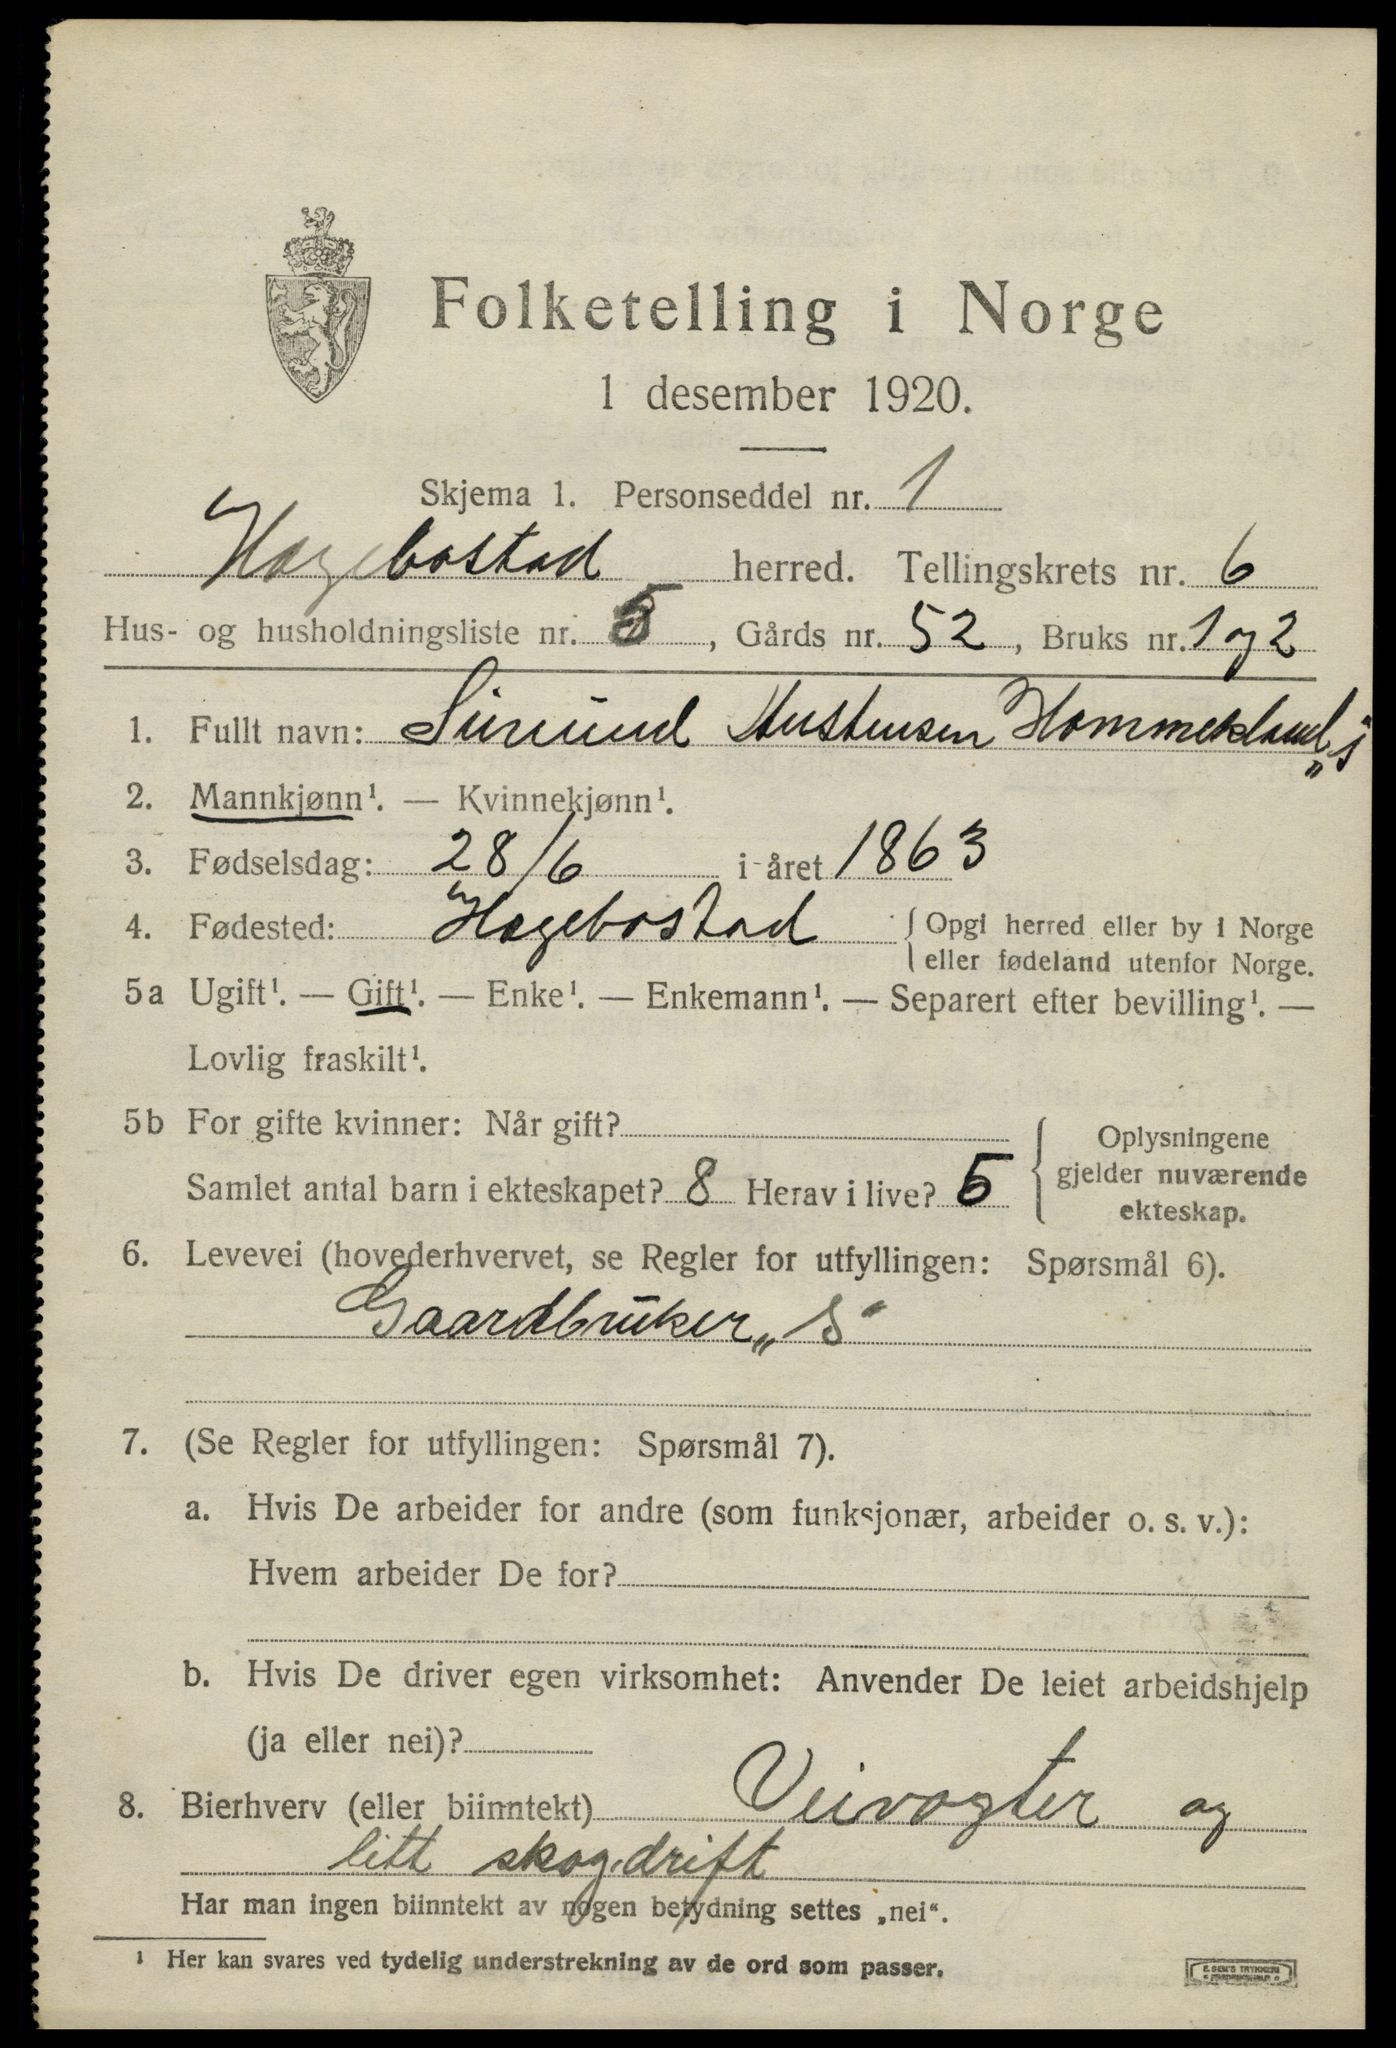 Folketelling i Norge
1 desember 1920.
Skjema 1. Personseddel nr. 1
Hægebostad herred. Tellingskrets nr. 6
Hus- og husholdningsliste nr. 5, Gårds nr. 52, Bruks nr. 1 og 2
1. Fullt navn: Austensen Hommekland „s“
2. Mannkjønn¹. — Kvinnekjønn¹.
3. Fødselsdag: 28/6 i året 1863
4. Fødested: Hægebostad { Opgi herred eller by i Norge
eller fødeland utenfor Norge.
5a Ugift¹. — Gift¹. — Enke¹. — Enkemann¹. — Separert efter bevilling¹. —
Lovlig fraskilt¹.
5b For gifte kvinner: Når gift?
Samlet antal barn i ekteskapet? 8 Herav i live? 5
{ Oplysningene
gjelder nuværende
ekteskap.
6. Levevei (hovederhvervet, se Regler for utfyllingen: Spørsmål 6).
Gaardbruker „S“
7. (Se Regler for utfyllingen: Spørsmål 7).
a. Hvis De arbeider for andre (som funksjonær, arbeider o. s. v.):
Hvem arbeider De for?
b. Hvis De driver egen virksomhet: Anvender De leiet arbeidshjelp
(ja eller nei)?
8. Bierhverv (eller biinntekt) Veivogter og
litt skogdrift
Har man ingen biinntekt av nogen betydning settes „nei“.
¹ Her kan svares ved tydelig understrekning av de ord som passer.